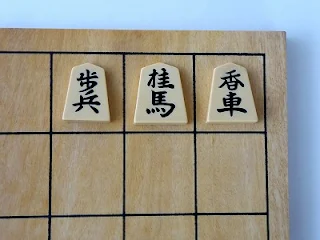 歩兵
桂馬
香車